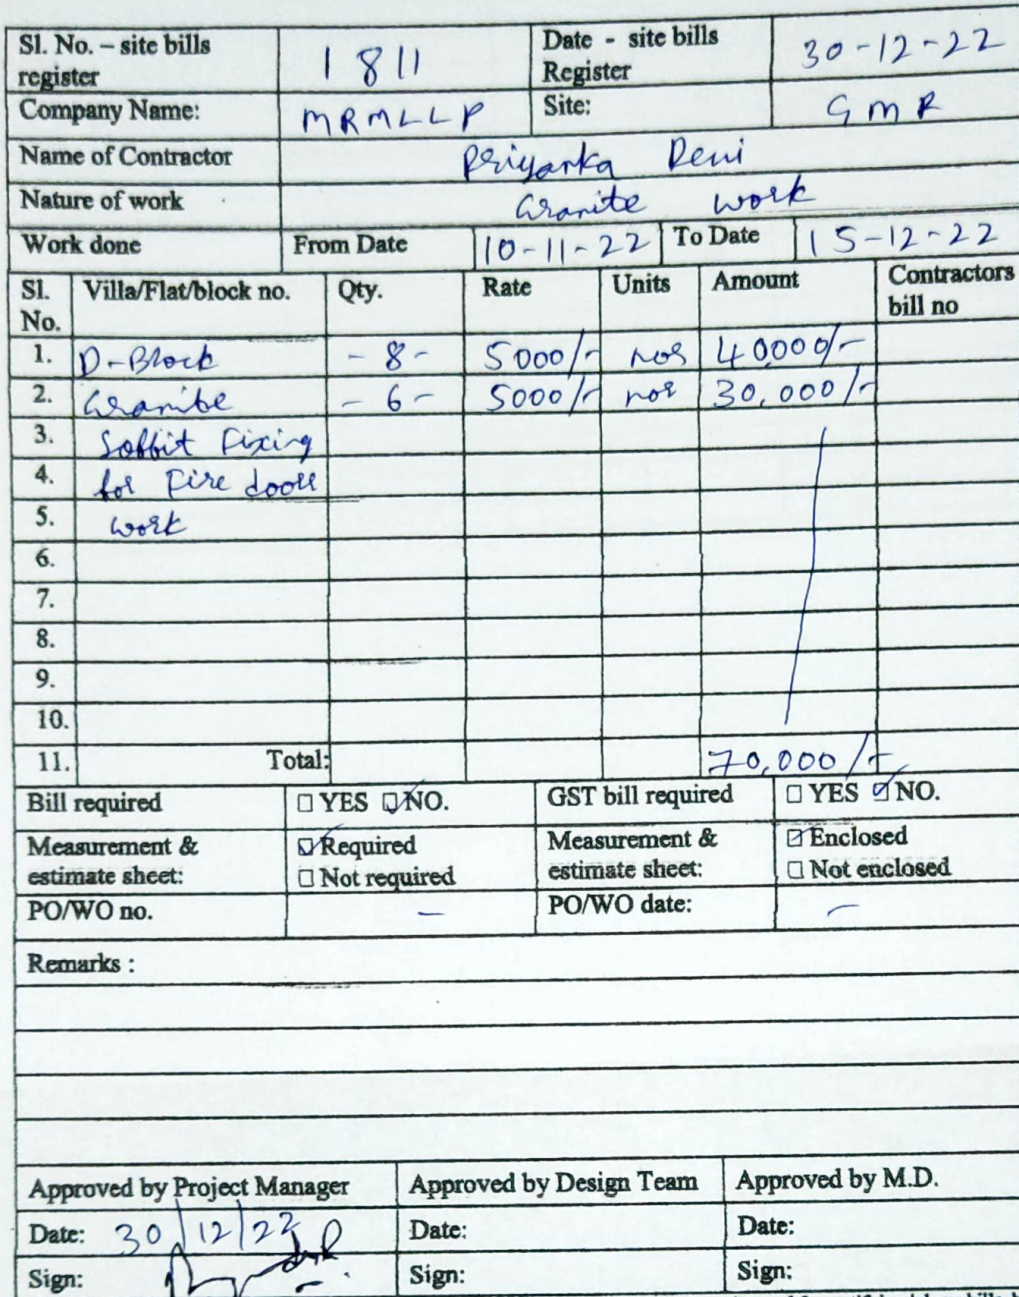 Sl. No. – site bills register 1811 Date - site bills Register 30-12-22
Company Name: MRMLLP Site: GMR
Name of Contractor Priyanka Devi
Nature of work Granite work
Work done From Date 10-11-22 To Date 15-12-22
Sl. No. Villa/Flat/block no. Qty. Rate Units Amount Contractors bill no
1. D-Block - 8 - 5000/- nos 40000/-
2. Granite - 6 - 5000/- nos 30,000/-
3. Soffit Fixing
4. for Fire doors
5. work
6.
7.
8.
9.
10.
11. Total: 70,000/-
Bill required ☐ YES ☑ NO. GST bill required ☐ YES ☑ NO.
Measurement & estimate sheet: ☑ Required ☐ Not required Measurement & estimate sheet: ☑ Enclosed ☐ Not enclosed
PO/WO no. – PO/WO date: –
Remarks :
Approved by Project Manager Approved by Design Team Approved by M.D.
Date: 30/12/22 Date: Date:
Sign: Sign: Sign: